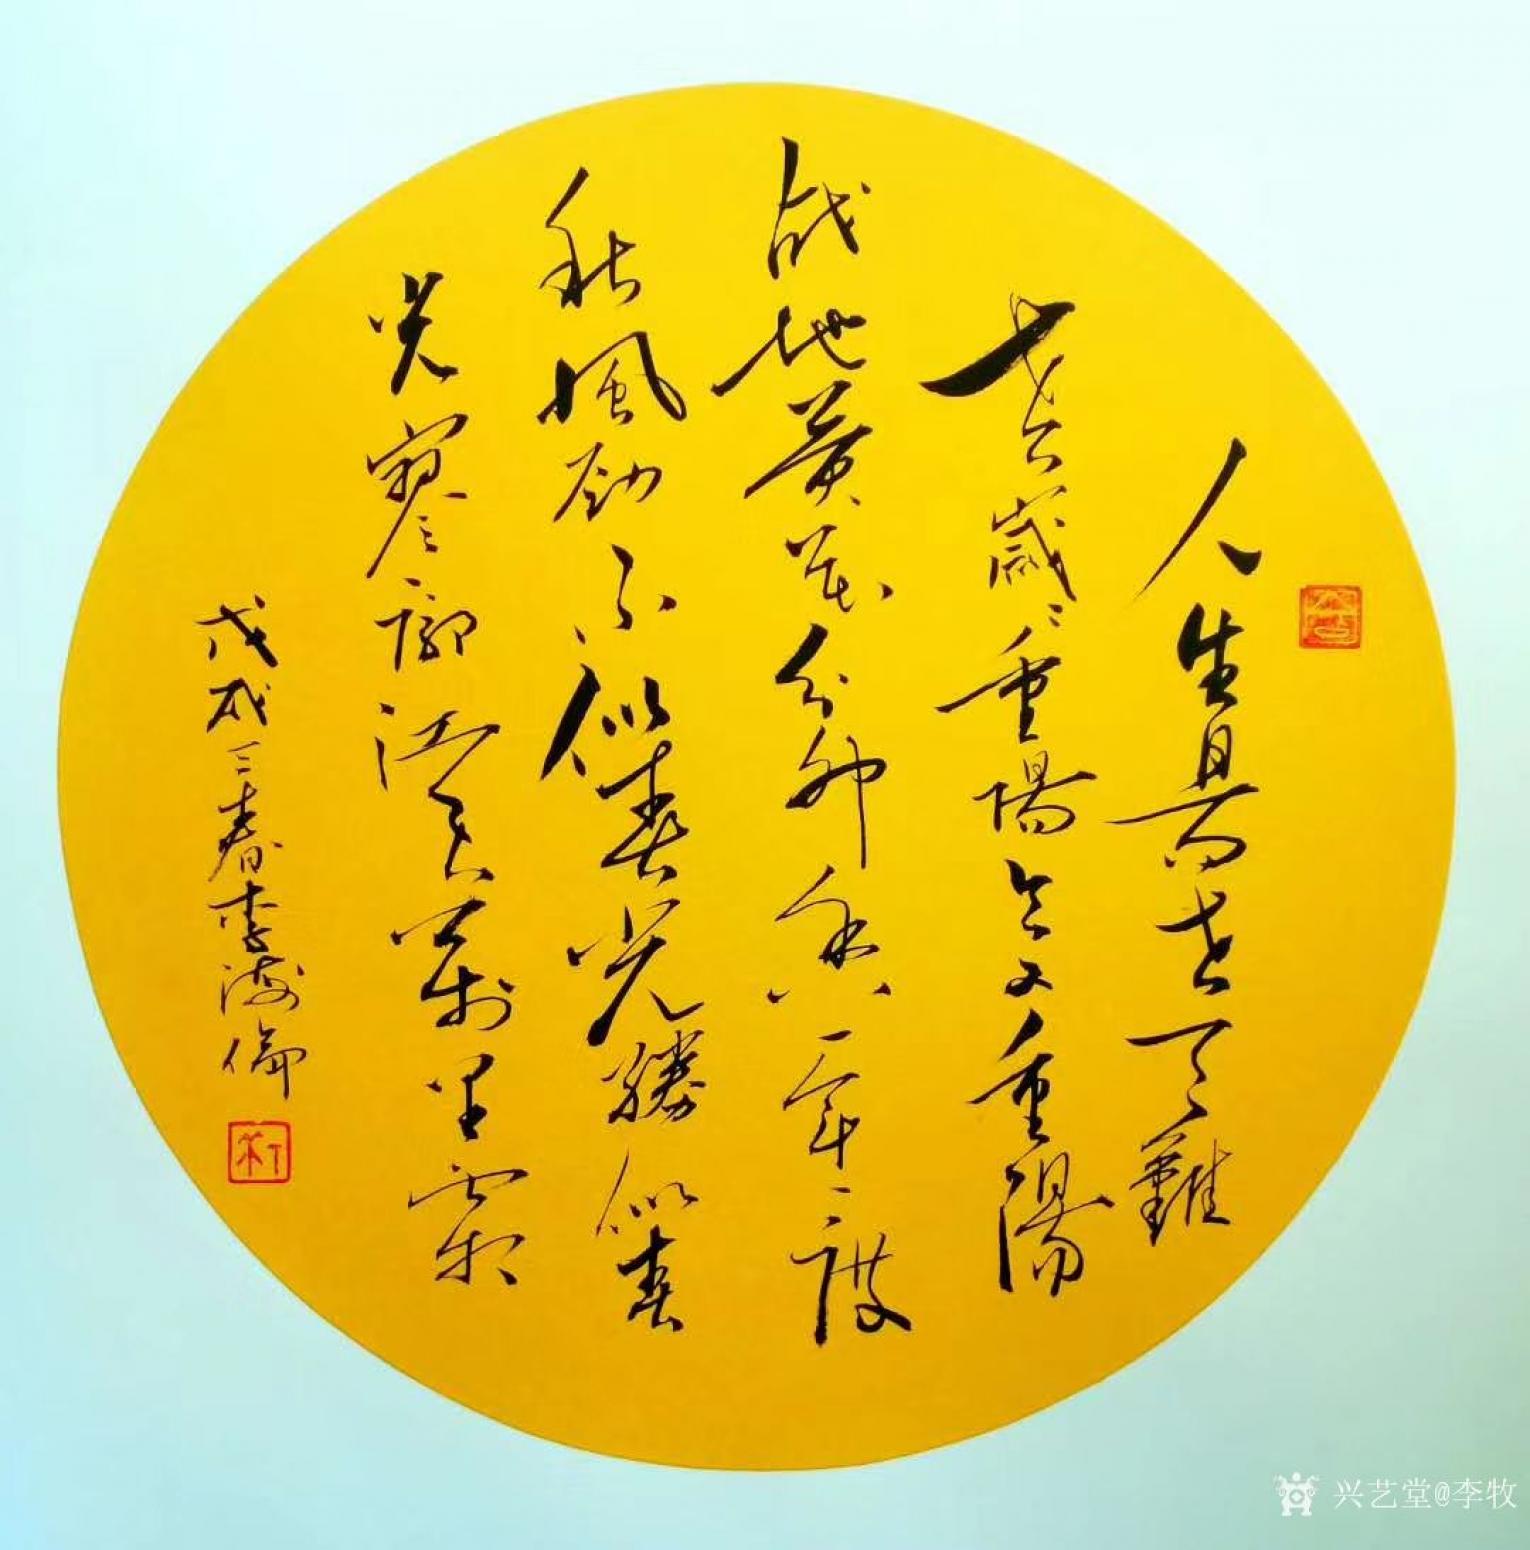 人生易老天難
老歲々重陽今又重陽
战地黄花分外香一年一度
秋風劲不似春光勝似春
光寥廓江天萬里霜
戊戌三春李海倫
兴艺堂@李牧